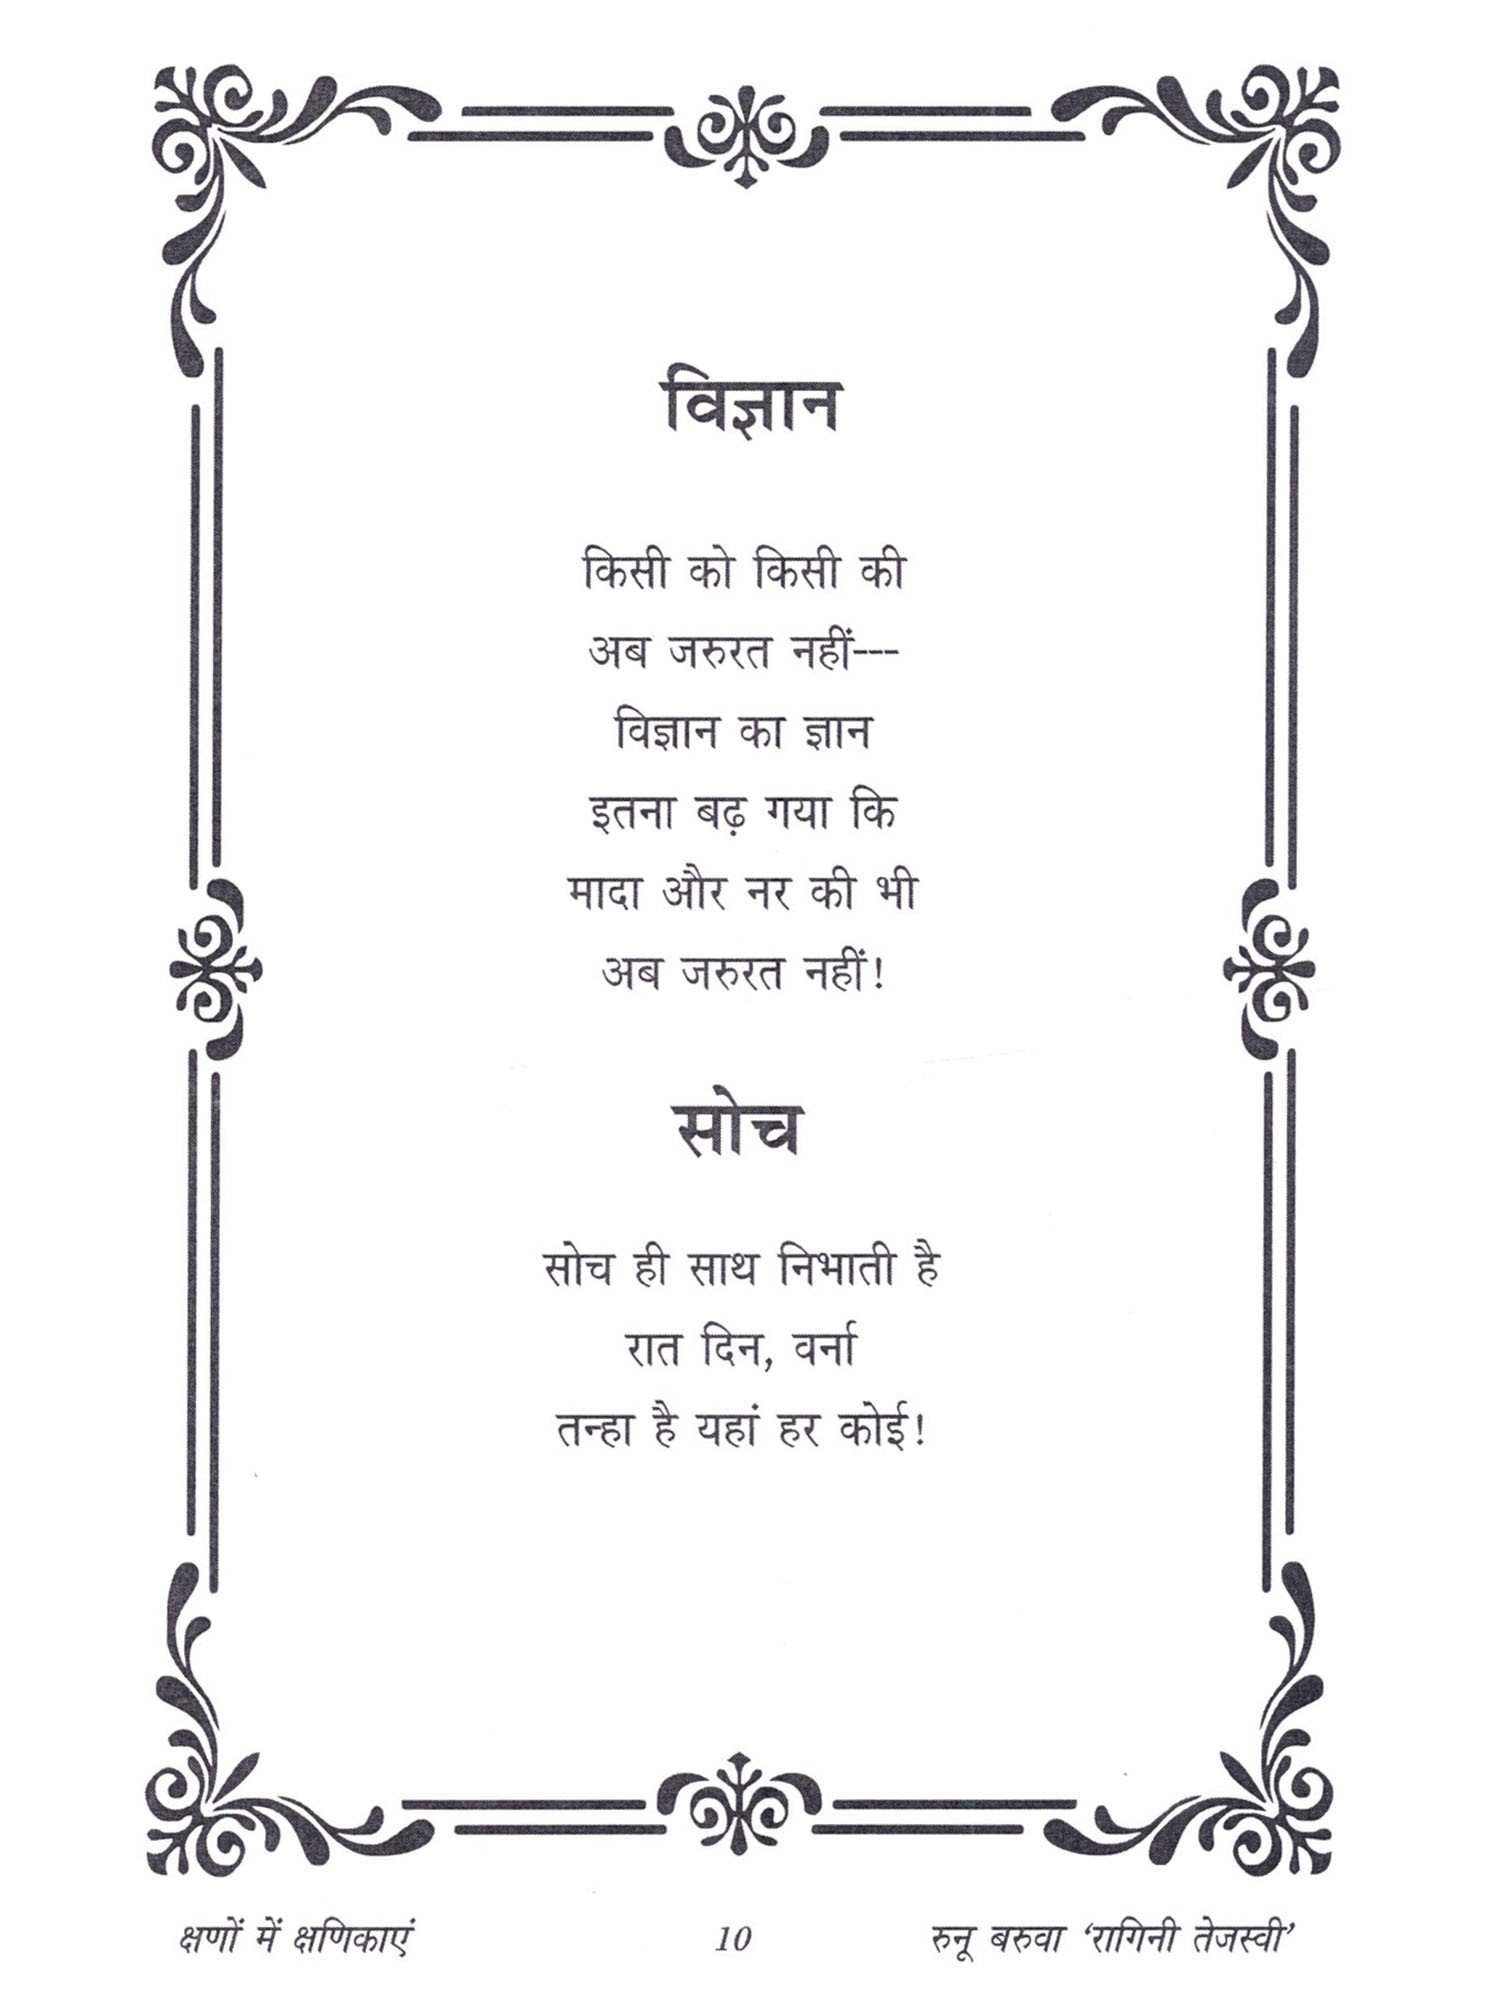 विज्ञान
किसी को किसी की
अब जरुरत नहीं---
विज्ञान का ज्ञान
इतना बढ़ गया कि
मादा और नर की भी
अब जरुरत नहीं!
सोच
सोच ही साथ निभाती है
रात दिन, वर्ना
तन्हा है यहां हर कोई!
क्षणों में क्षणिकाएं 10 रुनू बरुवा ‘रागिनी तेजस्वी’